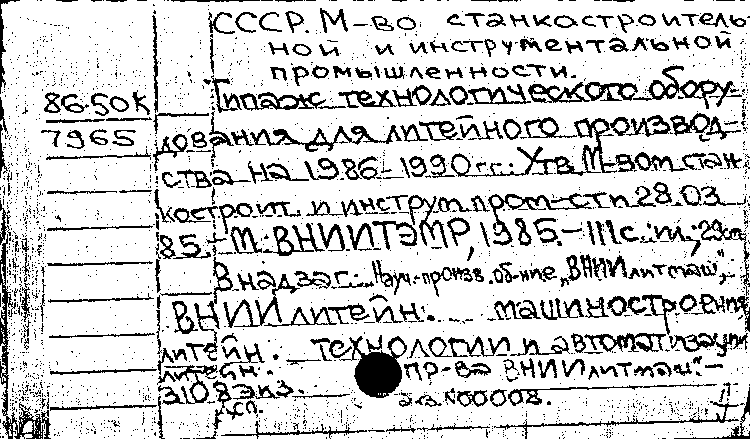 СССР. М-во станкостроитель
ной и инструментальной
промышленности.
86-50К Типаж технологического обору-
7965 дования для литейного производ-
ства на 1986-1990гг.: Утв. М-вом стан
костроит. и инструм. пром-сти 28.03
85. - М.: ВНИИТЭМР, 1985. - 111с.: ил.; 29см
В надзаг.: Науч.-произв. об-ние „ВНИИлитмаш",
ВНИИ литейн. машиностроения
литейн. технологии и автоматизации
литейн. пр-ва ВНИИлитмаш". -
3108 экз.